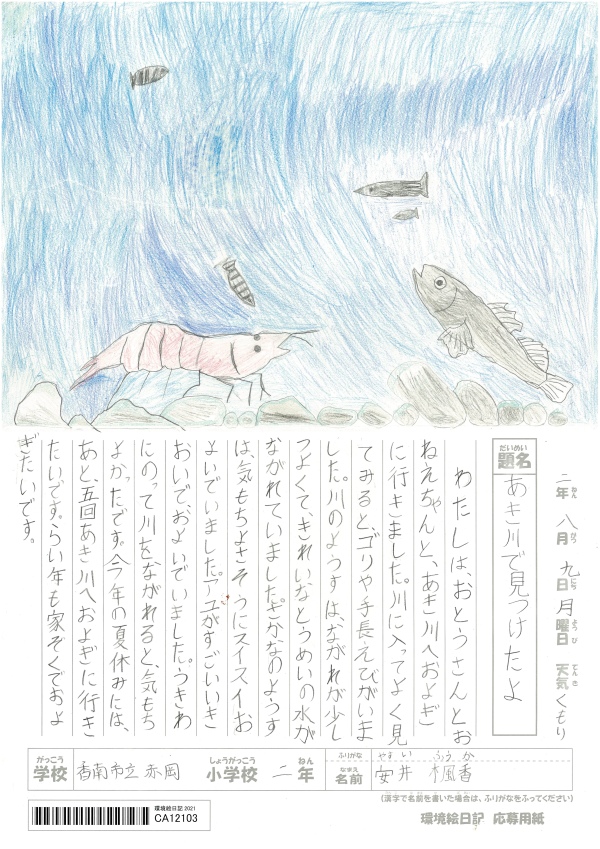 二年 八月 九日 月曜日 天気 くもり
ねん がつ にち ようび てんき
だいめい
題名
あき川で見つけたよ
わたしは、おとうさんとお
ねえちゃんと、あき川へおよぎ
に行きました。川に入ってよく見
てみると、ゴリや手長えびがいま
した。川のようすは、ながれが少し
つよくて、きれいなとうめいの水が
ながれていました。さかなのようす
は、気もちよさそうにスイスイお
よいでいました。アユがすごいいき
おいで、およいでいました。うきわ
にのって川をながれると、気もち
よかったです。今年の夏休みには、
あと、五回あき川へおよぎに行き
たいです。らい年も家ぞくでおよ
ぎたいです。
がっこう しょうがっこう ねん ふりがな やすい ふうか
学校 香南市立 赤岡 小学校 二年
なまえ
名前 安井 楓香
(漢字で名前を書いた場合は、ふりがなをふってください)
環境絵日記 2021
CA12103
環境絵日記 応募用紙